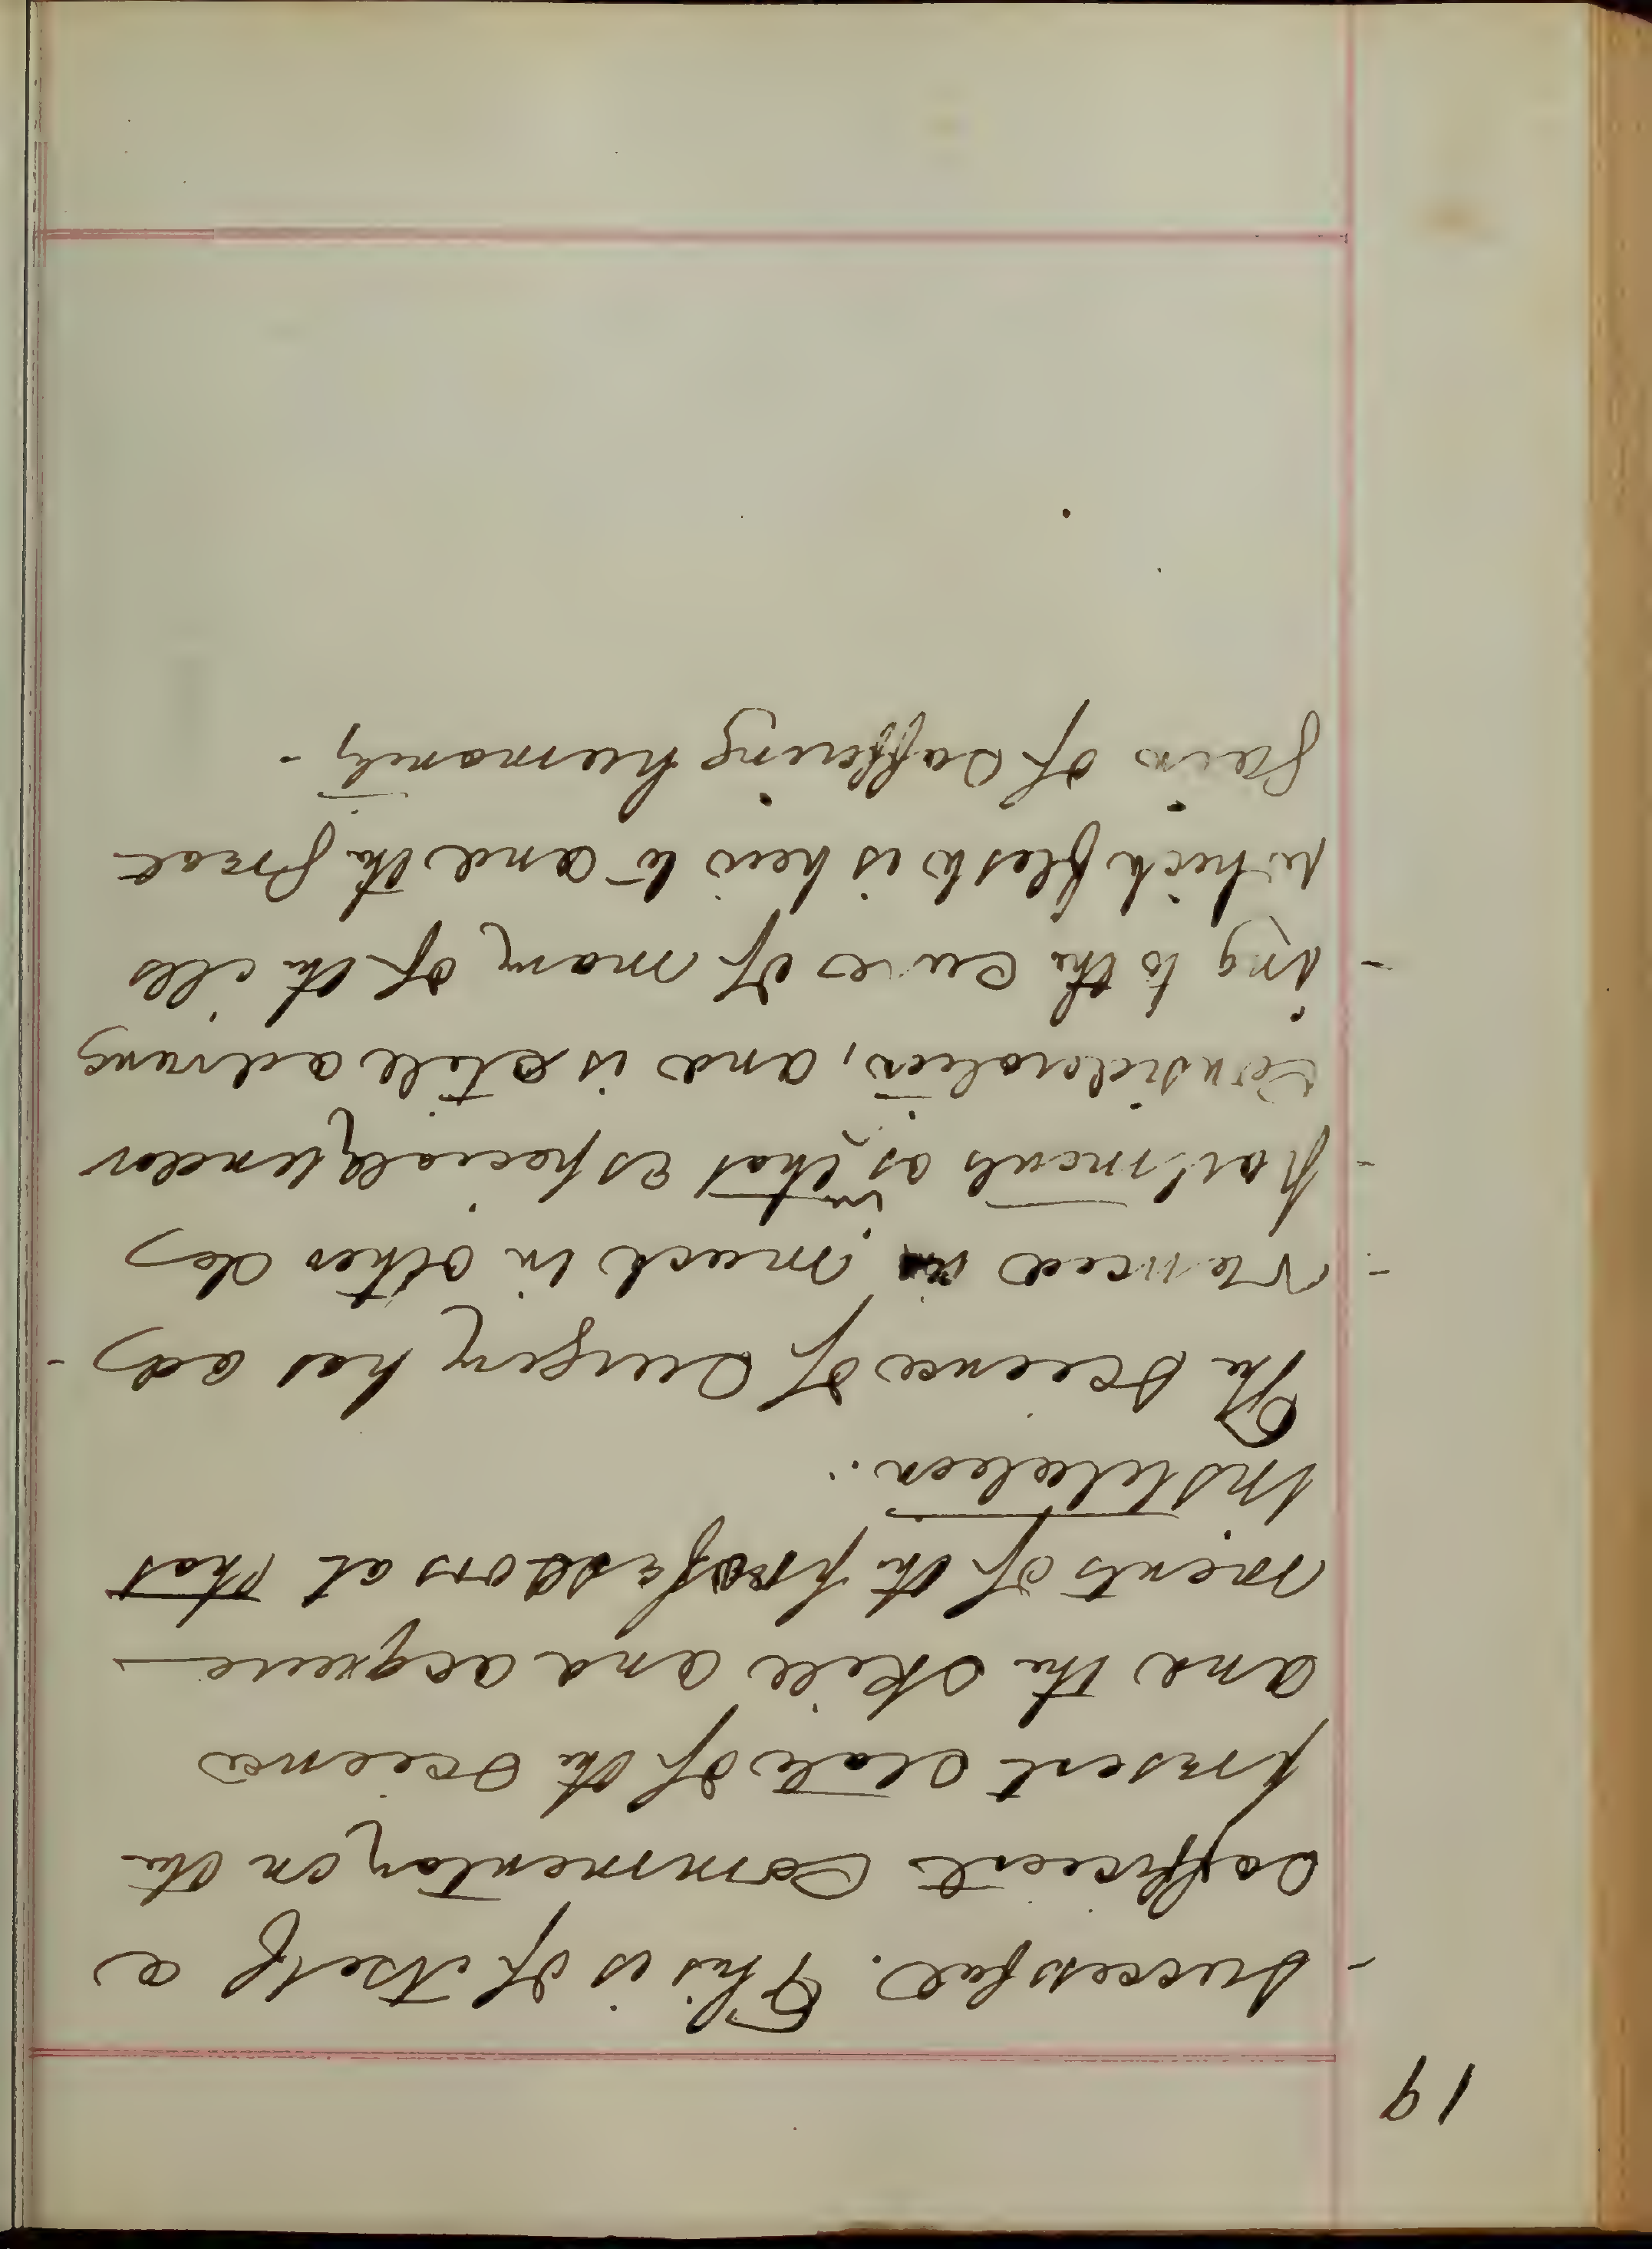 19
- successful. This is of itself a
sufficient commentary on the
present state of the science
and the skill and acquire
ments of the professors at that
institution.
The science of Surgery has ad -
- vanced in much in other de
- partments as in that especially under
consideration, and is still advanc
- ing to the cures of many of the ills
which flesh is heir to and the great
gain of suffering humanity -